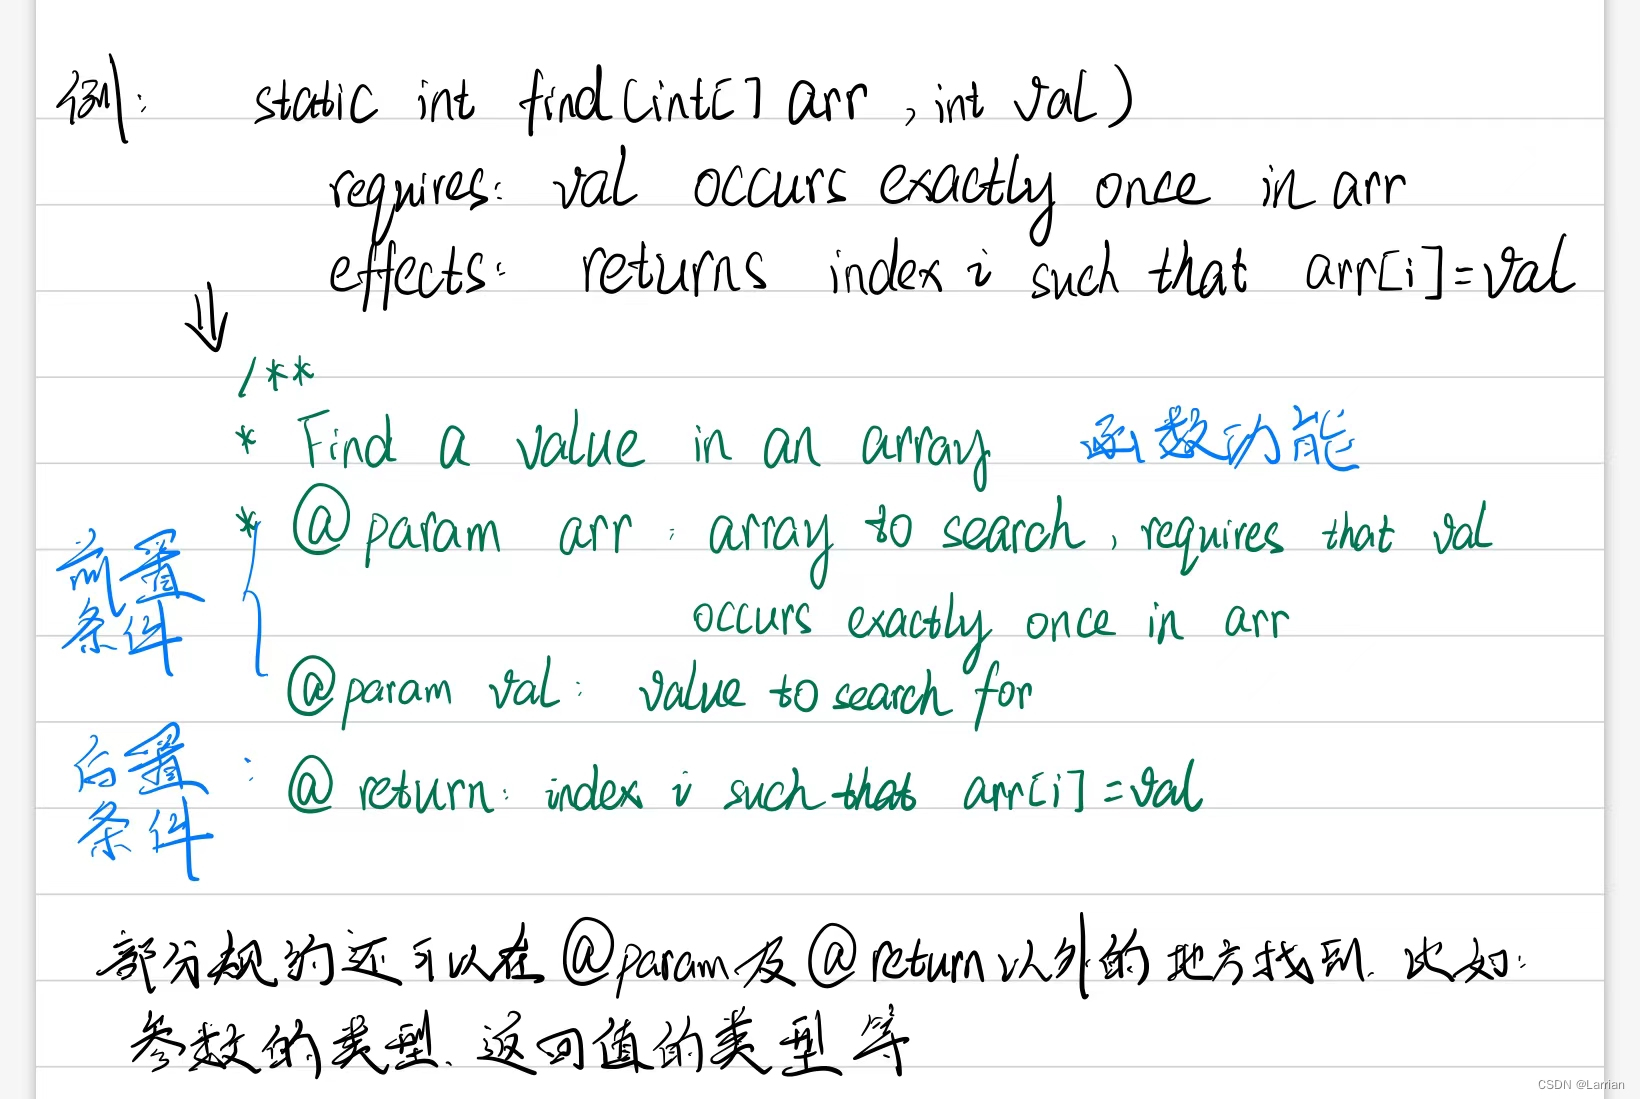 例: static int find(int[] arr, int val)
requires: val occurs exactly once in arr
effects: returns index i such that arr[i]=val
⇓
/**
* Find a value in an array 函数功能
* @param arr: array to search, requires that val
occurs exactly once in arr
前置
条件
@param val: value to search for
后置
条件:
@return: index i such that arr[i]=val
部分规约还可以在@param及@return以外的地方找到. 比如:
参数的类型、返回值的类型等
CSDN @Larrian